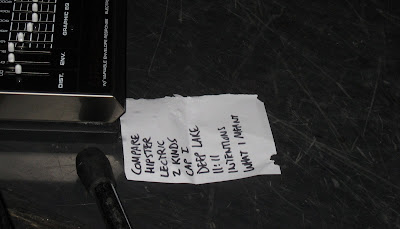 GRAPHIC EQ
DIST. ENV.
COMPARE
HIPSTER
LECTRIC
2 KINDS
CAP I
DEEP LAKE
11:11
INTENTIONS
WHAT I MEANT